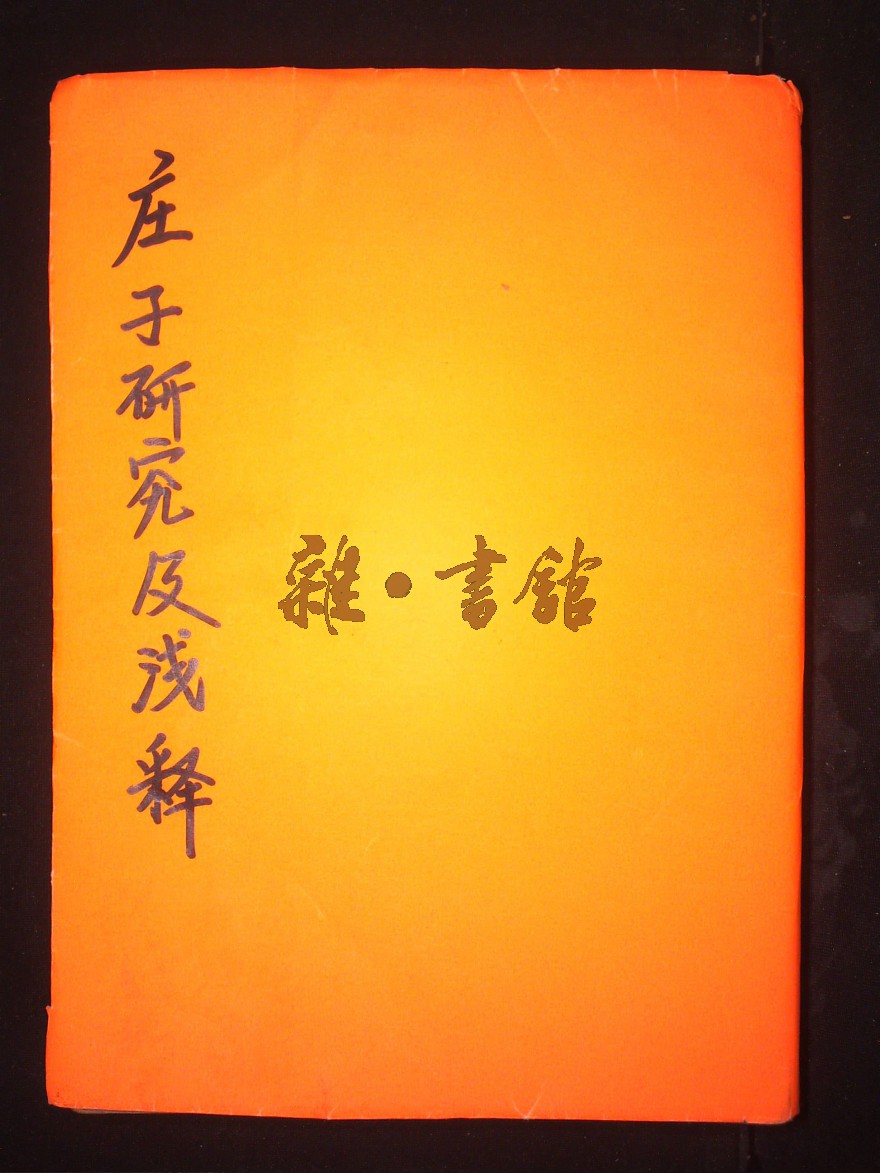 庄子研究及浅释
雜·書館